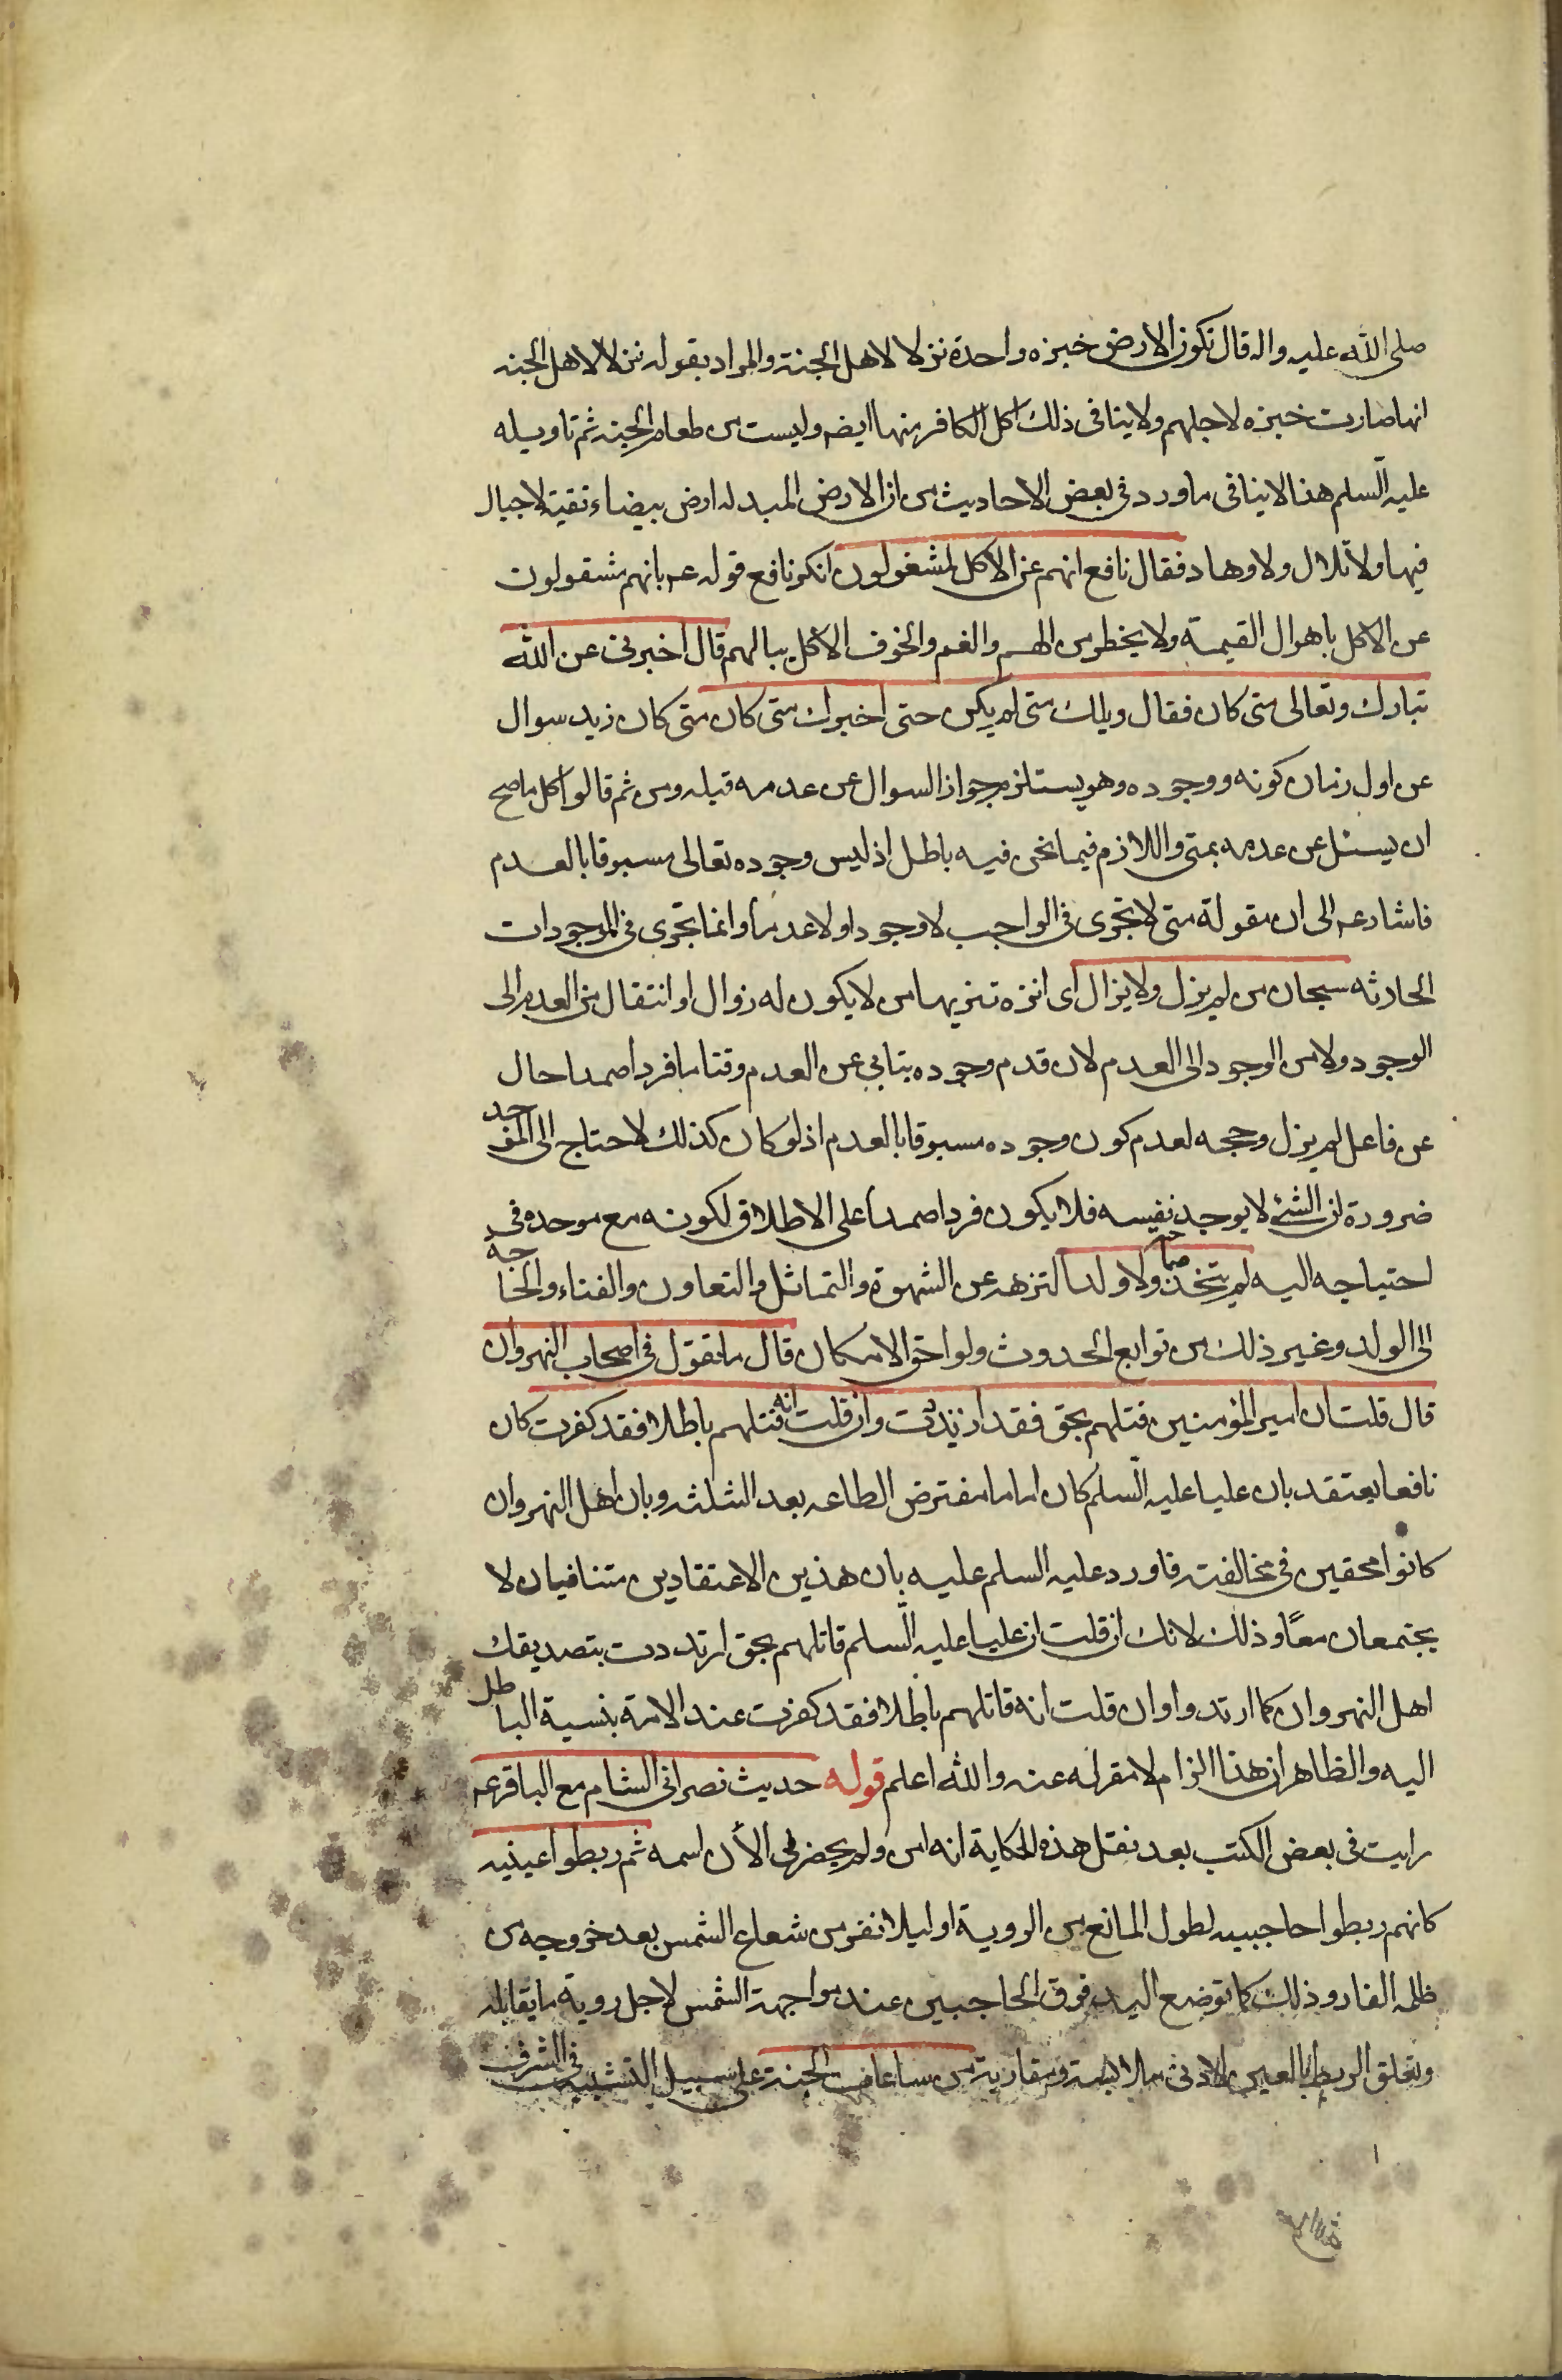 صلى الله عليه واله قال تكون الارض خبزه واحدة نزلا لاهل الجنة والمراد بقوله نزلا لاهل الجنه
انها صارت خبزه لاجلهم ولا ينافى ذلك اكل الكافر منها ايضه وليست من طعام الجنه ثم تاويله
عليه السلم هذا لا ينافى ما ورد فى بعض الاحاديث من ان الارض المبدله ارض بيضاء نقية لا جبال
فيها ولا تلال ولا وهاد فقال نافع انهم عن الاكل لمشغولون انكر نافع قوله عم بانهم مشغولون
عن الاكل باهوال القيمة ولا يخطر من الهم والغم والخوف الاكل ببالهم قال اخبرنى عن الله
تبارك وتعالى متى كان فقال ويلك متى لم يكن حتى اخبرك متى كان متى كان زيد سوال
عن اول زمان كونه ووجوده وهو يستلزم جواز السوال عن عدمه قبله ومن ثم قالوا كل ما صح
ان يسئل عن عدمه بمتى واللازم فيما نحن فيه باطل اذ ليس وجوده تعالى مسبوقا بالعدم
فاشار عم الى ان مقولة متى لا تجرى فى الواجب لا وجودا ولا عدما وانما تجرى فى الموجودات
الحادثه سبحان من لم يزل ولا يزال اى انزه تنزيها من لا يكون له زوال او انتقال من العدم الى
الوجود ولا من الوجود الى العدم لان قدم وجوده يتابى عن العدم وقتا ما فردا صمدا حال
عن فاعل لم يزل وحجه لعدم كون وجوده مسبوقا بالعدم اذ لو كان كذلك لاحتاج الى الموجد
ضرورة ان الشئ لا يوجد نفسه فلا يكون فردا صمدا على الاطلاق لكونه مع موحده فى
احتياجه اليه لم يتخذ صاحبه ولا ولدا لتنزهه عن الشهوة والتماثل والتعاون والفناء والحاجه
الى الولد وغير ذلك من توابع الحدوث ولواحق الامكان قال ما تقول فى اصحاب النهروان
قال قلت ان امير المؤمنين قتلهم بحق فقد ارتددت وان قلت انه قتلهم باطلا فقد كفرت كان
نافعا يعتقد بان عليا عليه السلم كان اماما مفترض الطاعه بعد الثلثه وبان اهل النهروان
كانوا محقين فى مخالفته فاورد عليه السلم عليه بان هذين الاعتقادين متنافيان لا
يجتمعان معًا وذلك لانك ان قلت ان عليا عليه السلم قاتلهم بحق ارتددت بتصديقك
اهل النهروان كما ارتدوا وان قلت انه قاتلهم باطلا فقد كفرت عند الامة بنسبة الباطل
اليه والظاهر ان هذا الزام لا مفر له عنه والله اعلم قوله حديث نصرانى الشام مع الباقر عم
رايت فى بعض الكتب بعد نقل هذه الحكاية انه امن ولم يحضرنى الأن اسمه ثم ربطوا عينيه
كانهم ربطوا حاجبيه لطول المانع من الروية او ليلا تنفر من شعاع الشمس بعد خروجه من
ظلمه الغار وذلك كما توضع اليد فوق الحاجبين عند مواجهة الشمس لاجل روية ما يقابله
وتعلق الربط بالعين لادنى ملابسة ومقاربة من ساعات الجنة على سبيل التشبيه فى الشرف